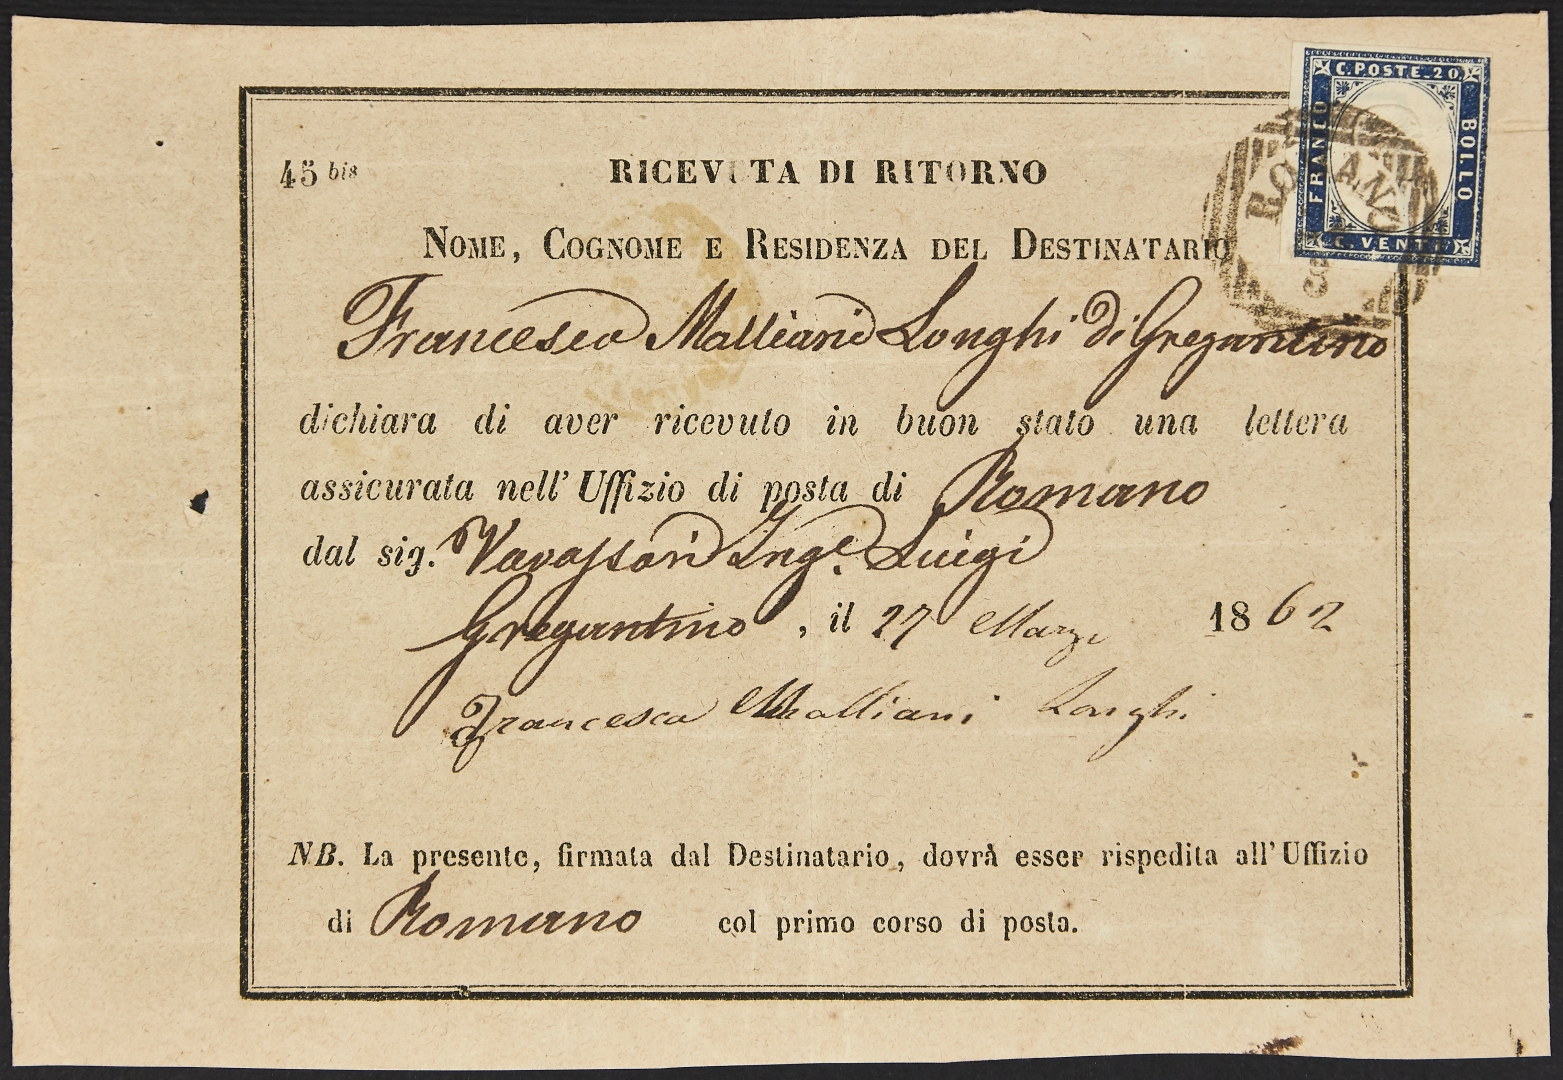 C. POSTE. 20.
FRANCO
BOLLO
C. VENTI
45 bis
RICEVUTA DI RITORNO
NOME, COGNOME E RESIDENZA DEL DESTINATARIO
Francesco Malliani Longhi di Gregantino
dichiara di aver ricevuto in buon stato una lettera
assicurata nell' Uffizio di posta di Romano
dal sig. Vavassori Ing.e Luigi
Gregantino, il 27 Marzo 1862
Francesco Malliani Longhi
NB. La presente, firmata dal Destinatario, dovrà esser rispedita all' Uffizio
di Romano col primo corso di posta.